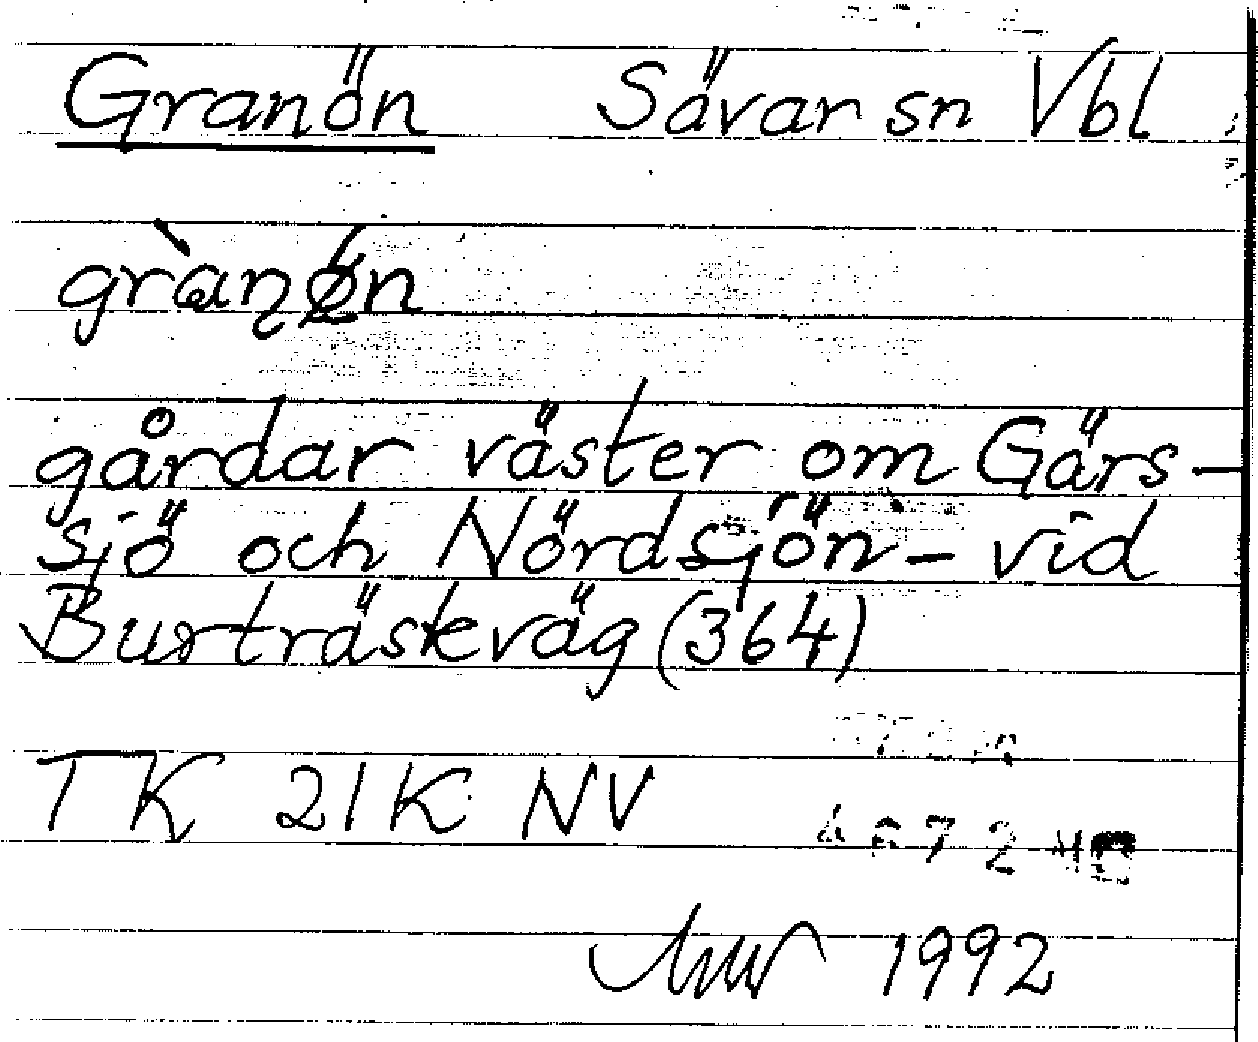 Granön Sävar sn Vbl
gårdar väster om Gärs-
sjö och Nördsjön - vid
Burträskväg (364)
TK 21K NV
1992